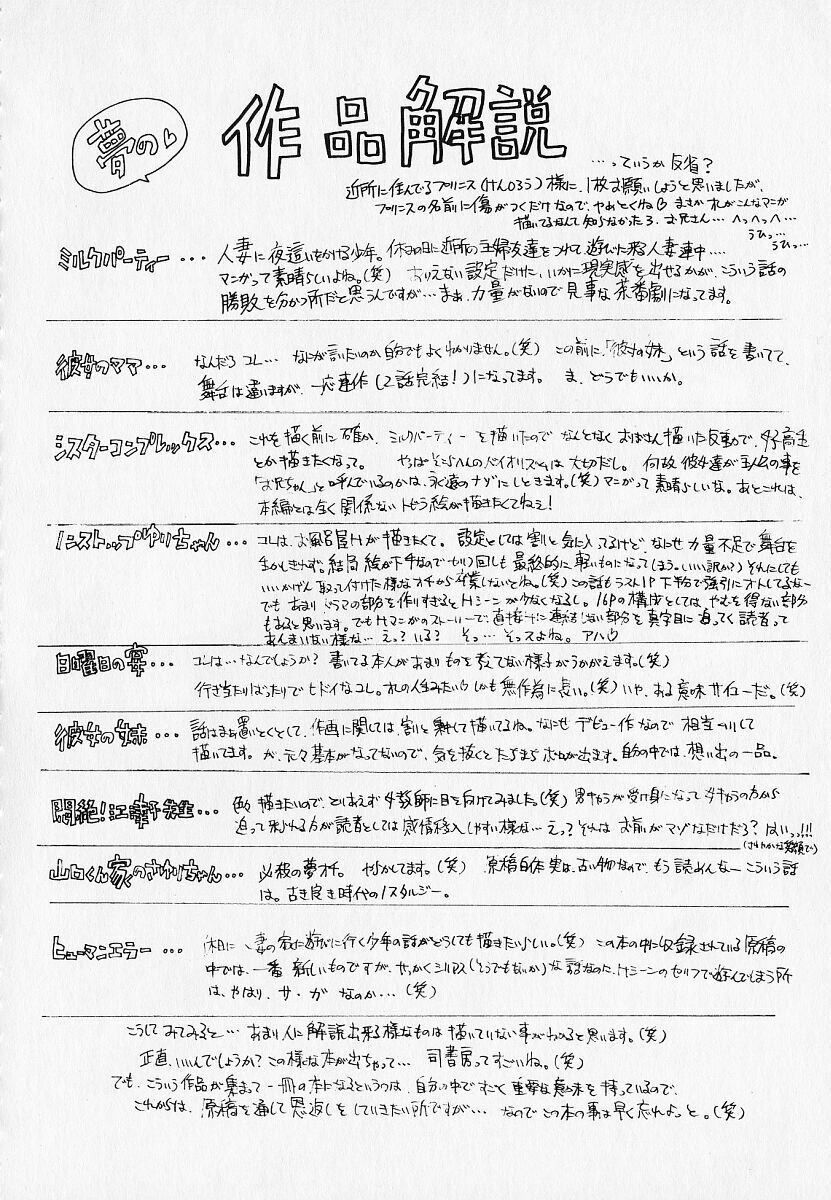 夢の
作品解説
…っていうか反省?
近所に住んでるプリンス(けんしろう)様に、1枚お願いしようと思いましたが、
プリンスの名前に傷がつくだけなので、やめとくね まさかオレがこんなマンガ
描いてるなんて知らなかったろ、お兄さん… へっへっへ…
うひっ… うひっ…
ミルクパーティー… 人妻に夜這いをかける少年。休みの日に近所の主婦友達をつれて遊びに来る人妻連中…
マンガって素晴らしいよね。(笑) ありえない設定だけど、いかに現実感を出せるかが、こういう話の
勝敗を分かつ所だと思うんですが…まぁ、力量がないので見事な茶番劇になってます。
彼女のママ… なんだろコレ… なにが言いたいのか自分でもよくわかりません。(笑) この前に、「彼女の妹」という話を書いてて、
舞台は違いますが、一応連作(2話完結!)になってます。 ま、どうでもいいか。
シスターコンプレックス… これを描く前に確か、ミルクパーティーを描いたのでなんとなくおばさん描いた反動で、女子高生
とか描きたくなって。 やっぱそこらへんのバイオリズムは大切だし。 何故彼女達が主人公の事を
「お兄ちゃん」と呼んでいるのかは、永遠のナゾにしときます。(笑)マンガって素晴らしいな。あとこれは、
本編とは全く関係ないトビラ絵が描きたくてねェ!
ノンストップゆりちゃん… コレは、お風呂屋Hが描きたくて。 設定としては割と気に入ってるけど、なにせ力量不足で舞台を
生かしきれず。結局絵が下手なのでセリフ回しも最終的に軽いものになってしまう。(いい訳か?)それにしても
いいかげん取って付けた様なオチから卒業しないとね。(笑)この話もラスト1P下物で強引にオトしてるなー
でもあまりドラマの部分を作りすぎるとHシーンが少なくなるし。16Pの構成としては、やむを得ない部分
もあると思います。でもHマンガのストーリーで、直接ナニに連結しない部分を真剣に追ってく読者って
あんまいない様な…えっ?いる? そっ…そっスよね。アハ
日曜日の宴… コレは…なんでしょうか? 書いてる本人があまりものを考えてない様子がうかがえます。(笑)
行き当たりばったりでヒドイなコレ。オレの人生みたい しかも無作為に長い。(笑)いや、ある意味サイコーだ。(笑)
彼女の妹… 話はまぁ置いとくとして、作画に関しては割と楽しく描いてるね。なにせデビュー作なので相当ノリして
描いてます。が、元々基本がなってないので、気を抜くとたちまちボロが出ます。自分の中では、想い出の一品。
悶絶!江幸子先生… 色々描きたいので、とりあえず女教師に目を向けてみました。(笑) 男キャラが受け身になって女キャラの方から
迫って来られる方が読者としては感情移入しやすい様な…えっ?それはお前がマゾなだけだろ? はいっっ!!!
(さわやかな笑顔で)
山口くん家のさゆりちゃん… 必殺の夢オチ。 やらかしてます。(笑) 原稿自体実は、古い物なので、もう読めんなーこういう話
は。古き良き時代のノスタルジー。
ヒューマンエラー… 体に人妻の家に遊びに行く少年の話がどうしても描きたいらしい。(笑) この本の中に収録されている原稿の
中では、一番新しいものですが、せっかくシリアス(そうでもないか)な話なのに、Hシーンのセリフで遊んでしまう所
は、やはり、サ・ガなのか…(笑)
こうしてみてみると… あまり人に解説出来る様なものは描いていない事がわかると思います。(笑)
正直、いいんでしょうか?この様な本が出ちゃって… 司書房ってすごいね。(笑)
でも、こういう作品が集まって一冊の本になるというのは、自分の中ですごく重要な意味を持っているので、
これからは、原稿を通して恩返しをしていきたい所ですが… なのでこの本の事は早く忘れよっと。(笑)